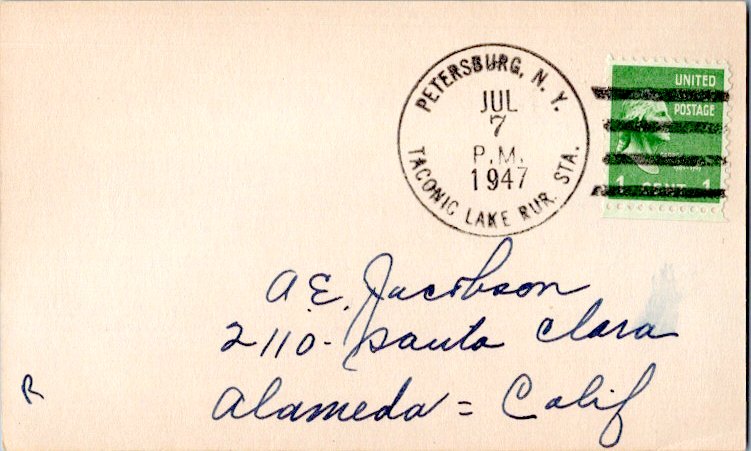 PETERSBURG, N. Y.
JUL
7
P.M.
1947
TACONIC LAKE RUR. STA.
UNITED
POSTAGE
1 1
A.E. Jacobson
2110 - Santa Clara
Alameda = Calif
R